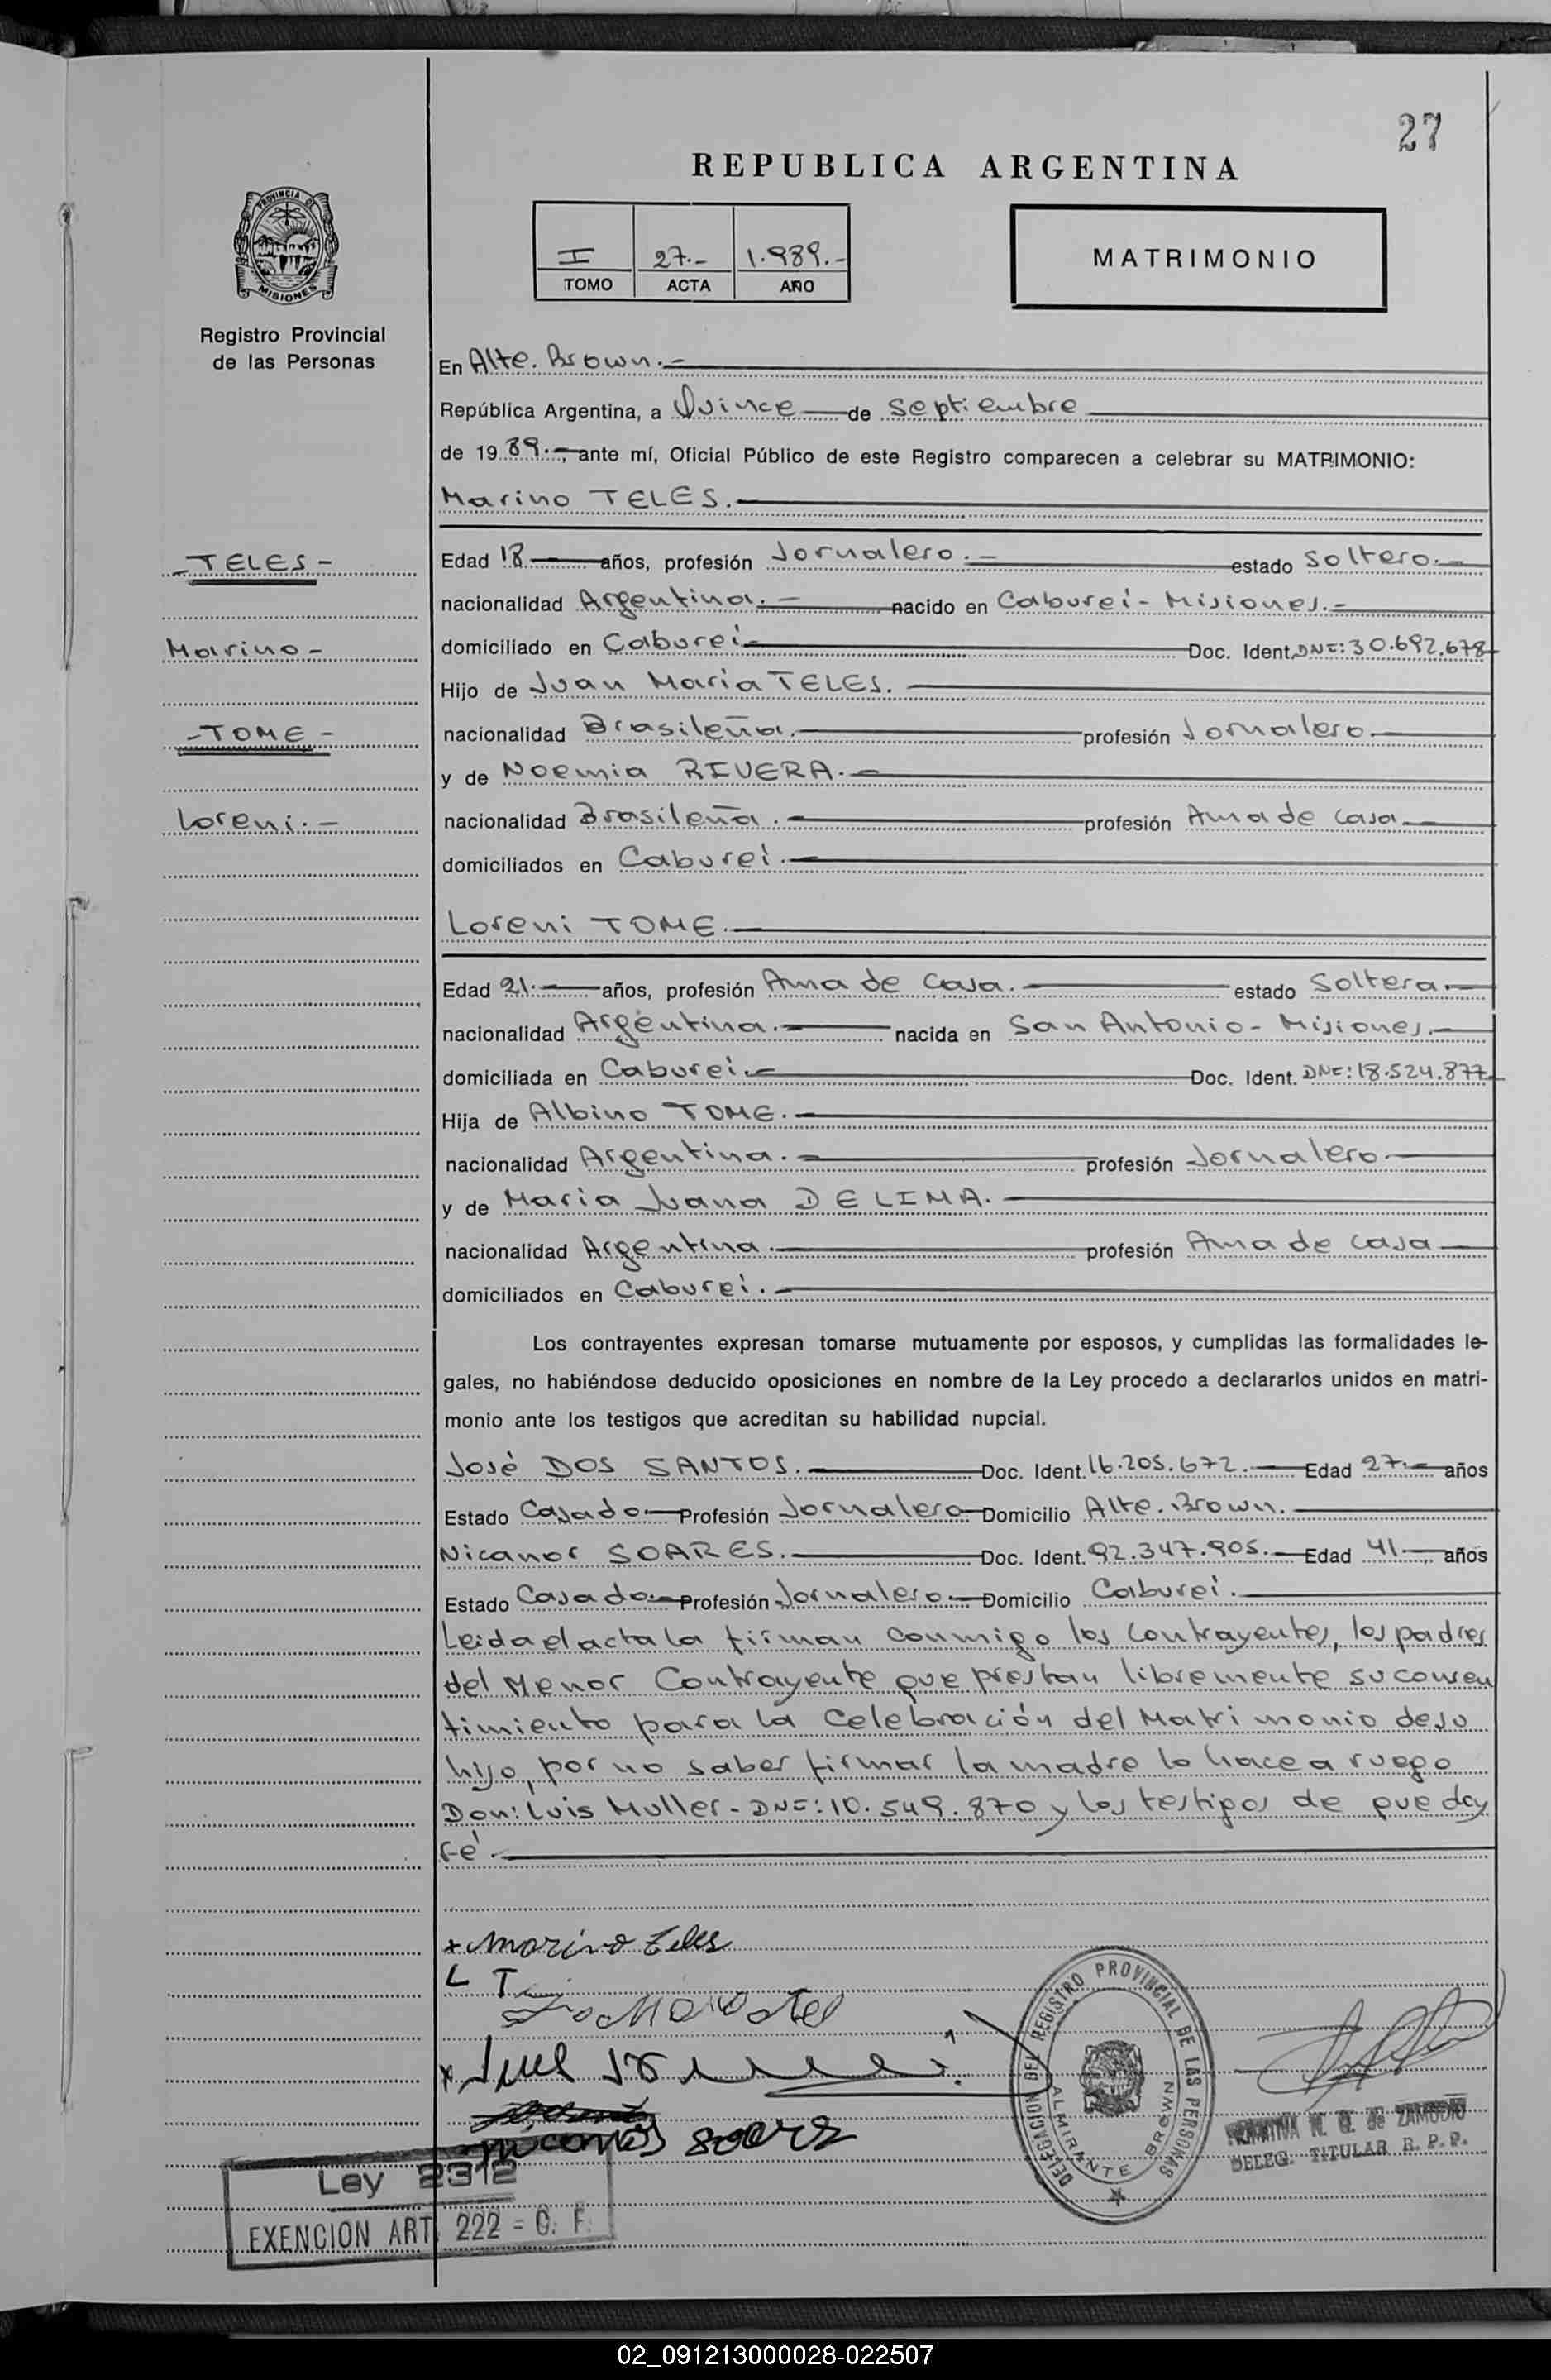 27
REPUBLICA ARGENTINA
PROVINCIA DE
MISIONES
I 27.- 1.989.-
TOMO ACTA AÑO
MATRIMONIO
Registro Provincial
de las Personas
En Alte. Brown.-
República Argentina, a Quince de Septiembre
de 1989.-, ante mí, Oficial Público de este Registro comparecen a celebrar su MATRIMONIO:
Marino TELES.
- TELES -
Edad 18 años, profesión Jornalero.- estado Soltero.-
nacionalidad Argentina.- nacido en Caburei - Misiones.-
Marino -
domiciliado en Caburei- Doc. Ident. DNI: 30.692.678
Hijo de Juan Maria TELES.
- TOME -
nacionalidad Brasileña. profesión Jornalero.
y de Noemia RIVERA.-
Loreni.-
nacionalidad Brasileña.- profesión Ama de casa
domiciliados en Caburei.-
Loreni TOME.
Edad 21.- años, profesión Ama de Casa.- estado Soltera.-
nacionalidad Argentina.- nacida en San Antonio - Misiones.-
domiciliada en Caburei.- Doc. Ident. DNI: 18.524.877
Hija de Albino TOME.-
nacionalidad Argentina.- profesión Jornalero
y de Maria Juana DE LIMA.
nacionalidad Argentina.- profesión Ama de casa
domiciliados en Caburei.-
Los contrayentes expresan tomarse mutuamente por esposos, y cumplidas las formalidades le-
gales, no habiéndose deducido oposiciones en nombre de la Ley procedo a declararlos unidos en matri-
monio ante los testigos que acreditan su habilidad nupcial.
José DOS SANTOS. Doc. Ident. 16.205.672.- Edad 27.- años
Estado Casado.- Profesión Jornalero- Domicilio Alte. Brown.
Nicanor SOARES. Doc. Ident. 92.347.905.- Edad 41.- años
Estado Casado.- Profesión Jornalero.- Domicilio Caburei.
Leida el acta la firman conmigo los Contrayentes, los padres
del Menor Contrayente que prestan libremente su consen
timiento para la Celebración del Matrimonio de su
hijo, por no saber firmar la madre lo hace a ruego
Don: Luis Muller - DNI: 10.549.870 y los testigos de que doy
Fé.
x Marino teles
L T
soares
DELEGACION DEL REGISTRO PROVINCIAL DE LAS PERSONAS
ALMIRANTE BROWN
N. G. de ZAMUDIO
DELEG. TITULAR R. P. P.
Ley 2312
EXENCION ART. 222 = C. F.
02_091213000028-022507